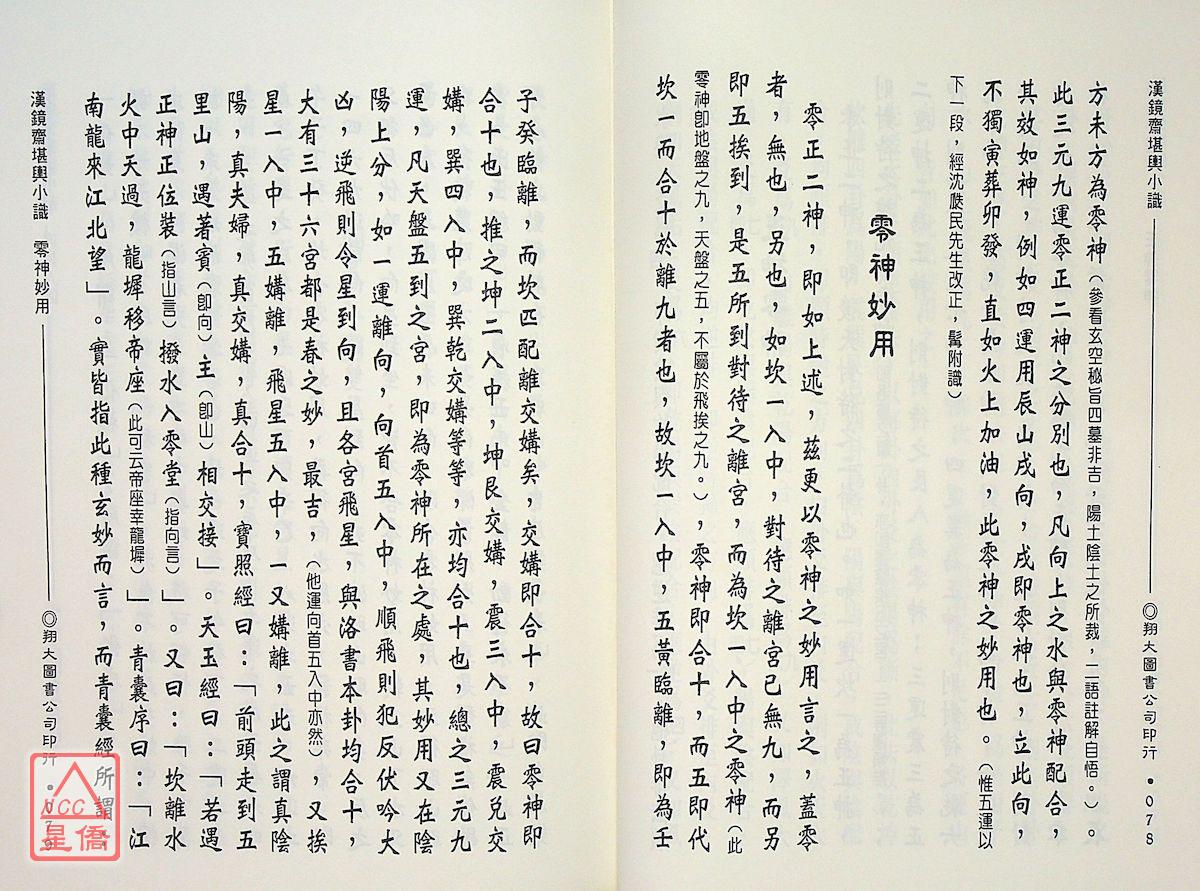 漢鏡齋堪輿小識 ◎翔大圖書公司印行 • 078
方未方為零神（參看玄空秘旨四墓非吉，陽土陰土之所裁，二語註解自悟。）。
此三元九運零正二神之分別也，凡向上之水與零神配合，
其效如神，例如四運用辰山戌向，戌即零神也，立此向，
不獨寅葬卯發，直如火上加油，此零神之妙用也。（惟五運以
下一段，經沈瓞民先生改正，髯附識）
零神妙用
零正二神，即如上述，茲更以零神之妙用言之，蓋零
者，無也，另也，如坎一入中，對待之離宮已無九，而另
即五挨到，是五所到對待之離宮，而為坎一入中之零神（此
零神卽地盤之九，天盤之五，不屬於飛挨之九。），零神即合十，而五即代
坎一而合十於離九者也，故坎一入中，五黃臨離，即為壬
子癸臨離，而坎匹配離交媾矣，交媾即合十，故曰零神即
合十也，推之坤二入中，坤艮交媾，震三入中，震兌交
媾，巽四入中，巽乾交媾等等，亦均合十也，總之三元九
運，凡天盤五到之宮，即為零神所在之處，其妙用又在陰
陽上分，如一運離向，向首五入中，順飛則犯反伏吟大
凶，逆飛則令星到向，且各宮飛星，與洛書本卦均合十，
大有三十六宮都是春之妙，最吉，（他運向首五入中亦然），又挨
星一入中，五媾離，飛星五入中，一又媾離，此之謂真陰
陽，真夫婦，真交媾，真合十，寶照經曰：「前頭走到五
里山，遇著賓（卽向）主（卽山）相交接」。天玉經曰：「若遇
正神正位裝（指山言）撥水入零堂（指向言）」。又曰：「坎離水
火中天過，龍墀移帝座（此可云帝座幸龍墀）」。青囊序曰：「江
南龍來江北望」。實皆指此種玄妙而言，而青囊經所謂：
漢鏡齋堪輿小識 零神妙用 ◎翔大圖書公司印行 • 079
NCC
星僑